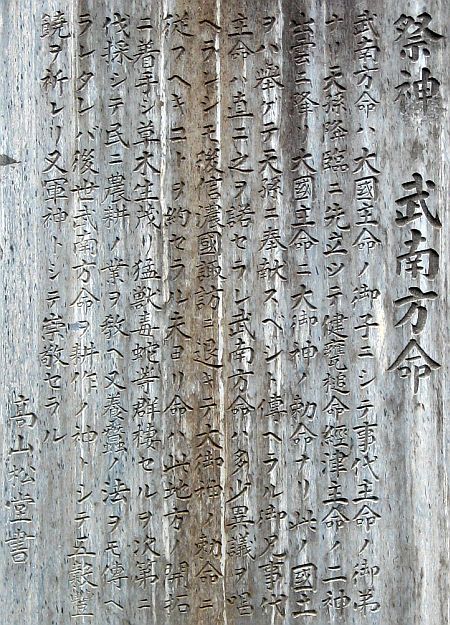 祭神　武南方命
武南方命ハ大國主命ノ御子ニシテ事代主命ノ御弟
ナリ天孫降臨ニ先立ツテ健甕槌命經津主命ノ二神
出雲ニ降リ大國主命ニ大御神ノ勅命ナリ此ノ國土
ヲハ挙ゲテ天孫ニ奉献スベシト傳ヘラル御兄事代
主命ハ直ニ之ヲ諾セラレ武南方命ハ多少異議ヲ唱
ヘテレシモ後信濃國諏訪ヨ退キテ大御神ノ勅命ニ
従フヘキコトヲ約セラル夫ヨリ命ハ此地方ノ開拓
ニ着手シ草木生茂リ猛獣毒蛇等群棲セルヲ次第ニ
伐採シテ民ニ農耕ノ業ヲ教ヘ又養蠶ノ法ヲモ傳ヘ
ランタンバ後世武南方命ヲ耕作ノ神トシテ五穀豊
饒ヲ祈レリ又軍神トシテ崇敬セラル
高山松堂書